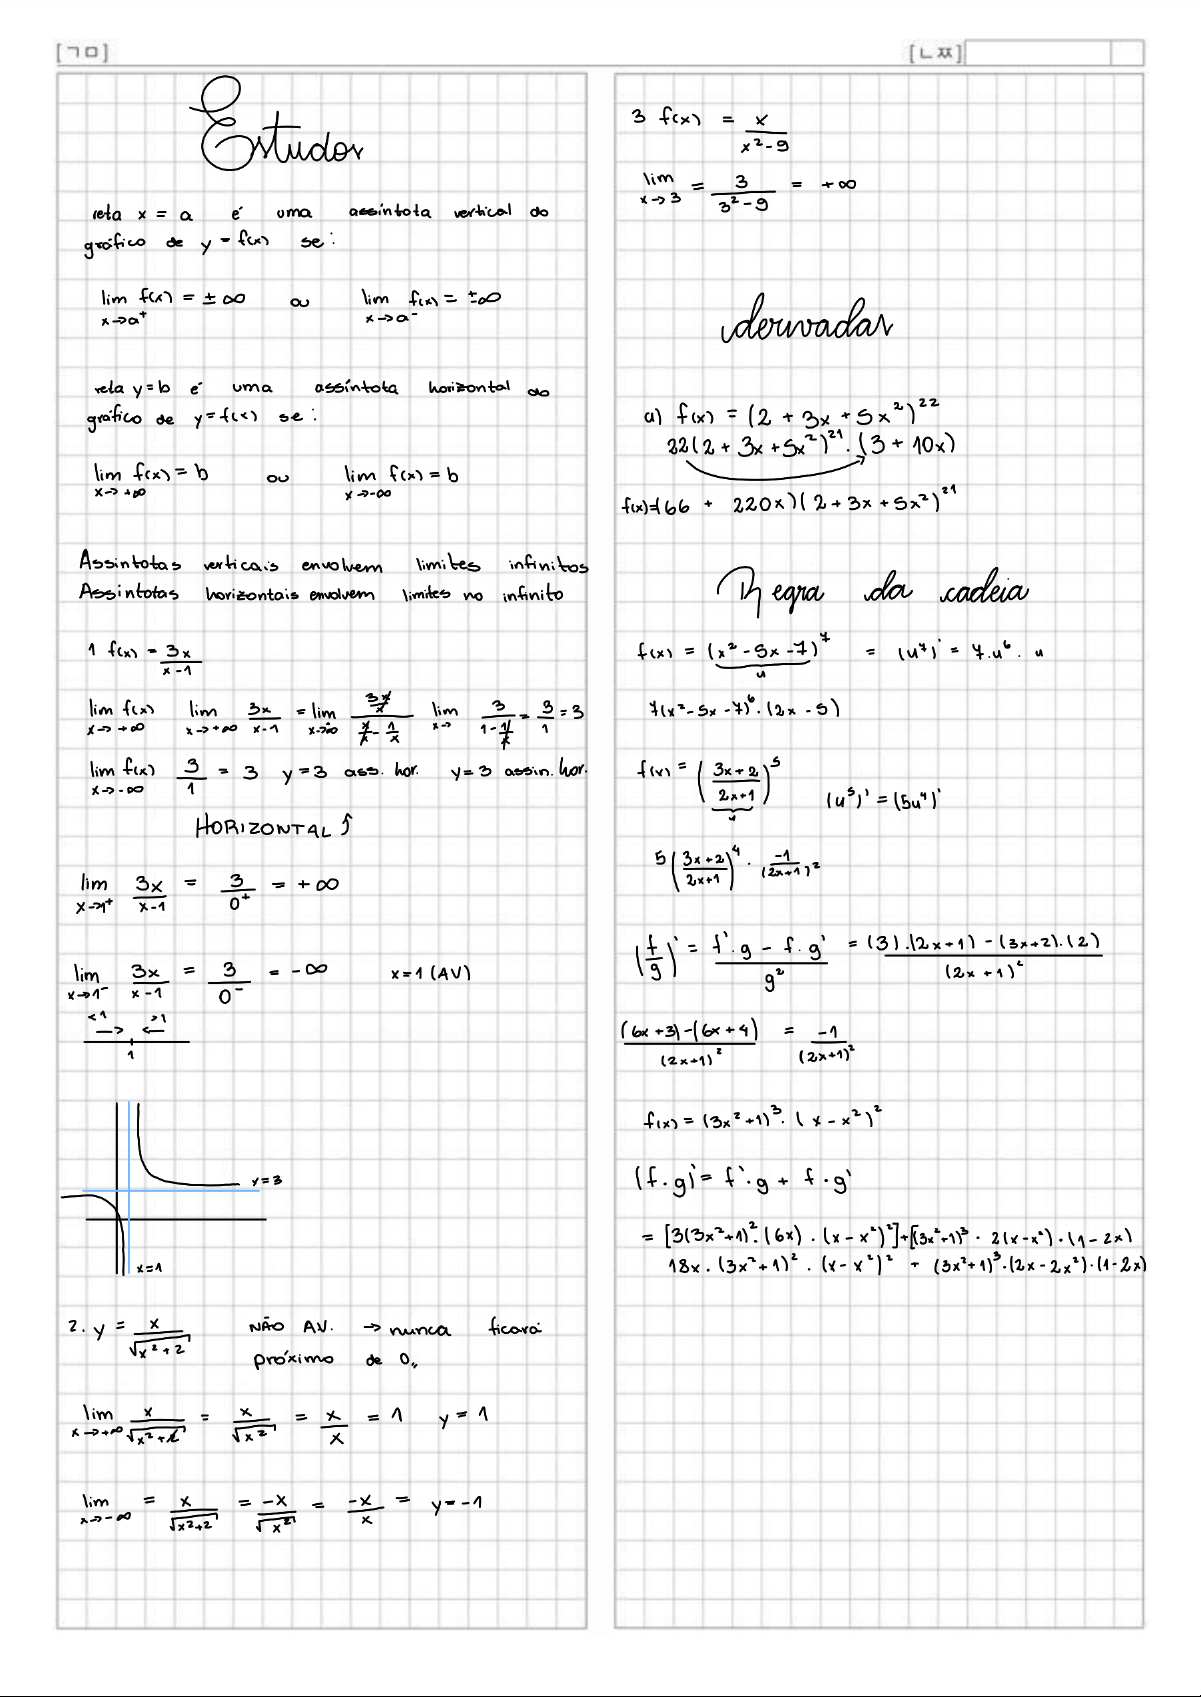 [ㄱㅁ]
[ㄴㅉ]
Estudos
reta x = a é uma assíntota vertical do
gráfico de y = f(x) se:
lim f(x) = ± ∞ ou lim f(x) = ±∞
x→a⁺ x→a⁻
reta y=b é uma assíntota horizontal do
gráfico de y=f(x) se:
lim f(x) = b ou lim f(x) = b
x→+∞ x→-∞
Assintotas verticais envolvem limites infinitos
Assintotas horizontais envolvem limites no infinito
1 f(x) = 3x/(x-1)
lim f(x) lim 3x/(x-1) = lim (3x/x)/(x/x - 1/x) lim 3/(1-1/x) = 3/1 = 3
x→+∞ x→+∞ x→∞ x→
lim f(x) 3/1 = 3 y=3 ass. hor. y=3 assin. hor.
x→-∞
HORIZONTAL ↑
lim 3x/(x-1) = 3/0⁺ = +∞
x→1⁺
lim 3x/(x-1) = 3/0⁻ = -∞ x=1 (AV)
x→1⁻
<1 >1
→ ←
1
y=3
x=1
2. y = x/√(x²+2) NÃO AV. → nunca ficará
próximo de 0,,
lim x/√(x²+2) = x/√(x²) = x/x = 1 y = 1
x→+∞
lim = x/√(x²+2) = -x/√(x²) = -x/x = y=-1
x→-∞
3 f(x) = x/(x²-9)
lim = 3/(3²-9) = +∞
x→3
derivadas
a) f(x) = (2 + 3x + 5x²)²²
22(2 + 3x + 5x²)²¹ . (3 + 10x)
f(x)=(66 + 220x)(2 + 3x + 5x²)²¹
Regra da cadeia
f(x) = (x² - 5x - 7)⁷ = (u⁷)' = 7.u⁶ . u
u
7(x²-5x-7)⁶.(2x-5)
f(x) = ((3x+2)/(2x+1))⁵ (u⁵)' = (5u⁴)'
u
5((3x+2)/(2x+1))⁴ . -1/(2x+1)²
(f/g)' = (f'.g - f.g')/g² = ((3).(2x+1) - (3x+2).(2))/(2x+1)²
((6x+3)-(6x+4))/(2x+1)² = -1/(2x+1)²
f(x) = (3x²+1)³ . (x - x²)²
(f.g)' = f'.g + f.g'
= [3(3x²+1)².(6x) . (x-x²)²]+[(3x²+1)³ . 2(x-x²).(1-2x)
18x.(3x²+1)² . (x-x²)² + (3x²+1)³.(2x-2x²).(1-2x)